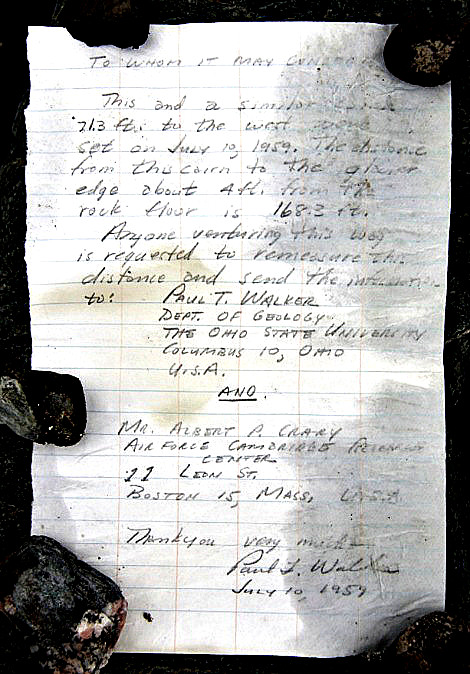 TO WHOM IT MAY CONCERN
This and a similar
71.3 ft. to the west were
set on July 10, 1959. The distance
from this cairn to the glacier
edge about 4 ft. from the
rock floor is 168.3 ft.
Anyone venturing this way
is requested to remeasure this
distance and send the information
to: PAUL T. WALKER
DEPT. OF GEOLOGY
THE OHIO STATE UNIVERSITY
COLUMBUS 10, OHIO
U.S.A.
AND
MR. ALBERT P. CRARY
AIR FORCE CAMBRIDGE
CENTER
11 LEON ST.
BOSTON 15, MASS. U.S.A.
Thank you very much
Paul T. Walker
JULY 10, 1959